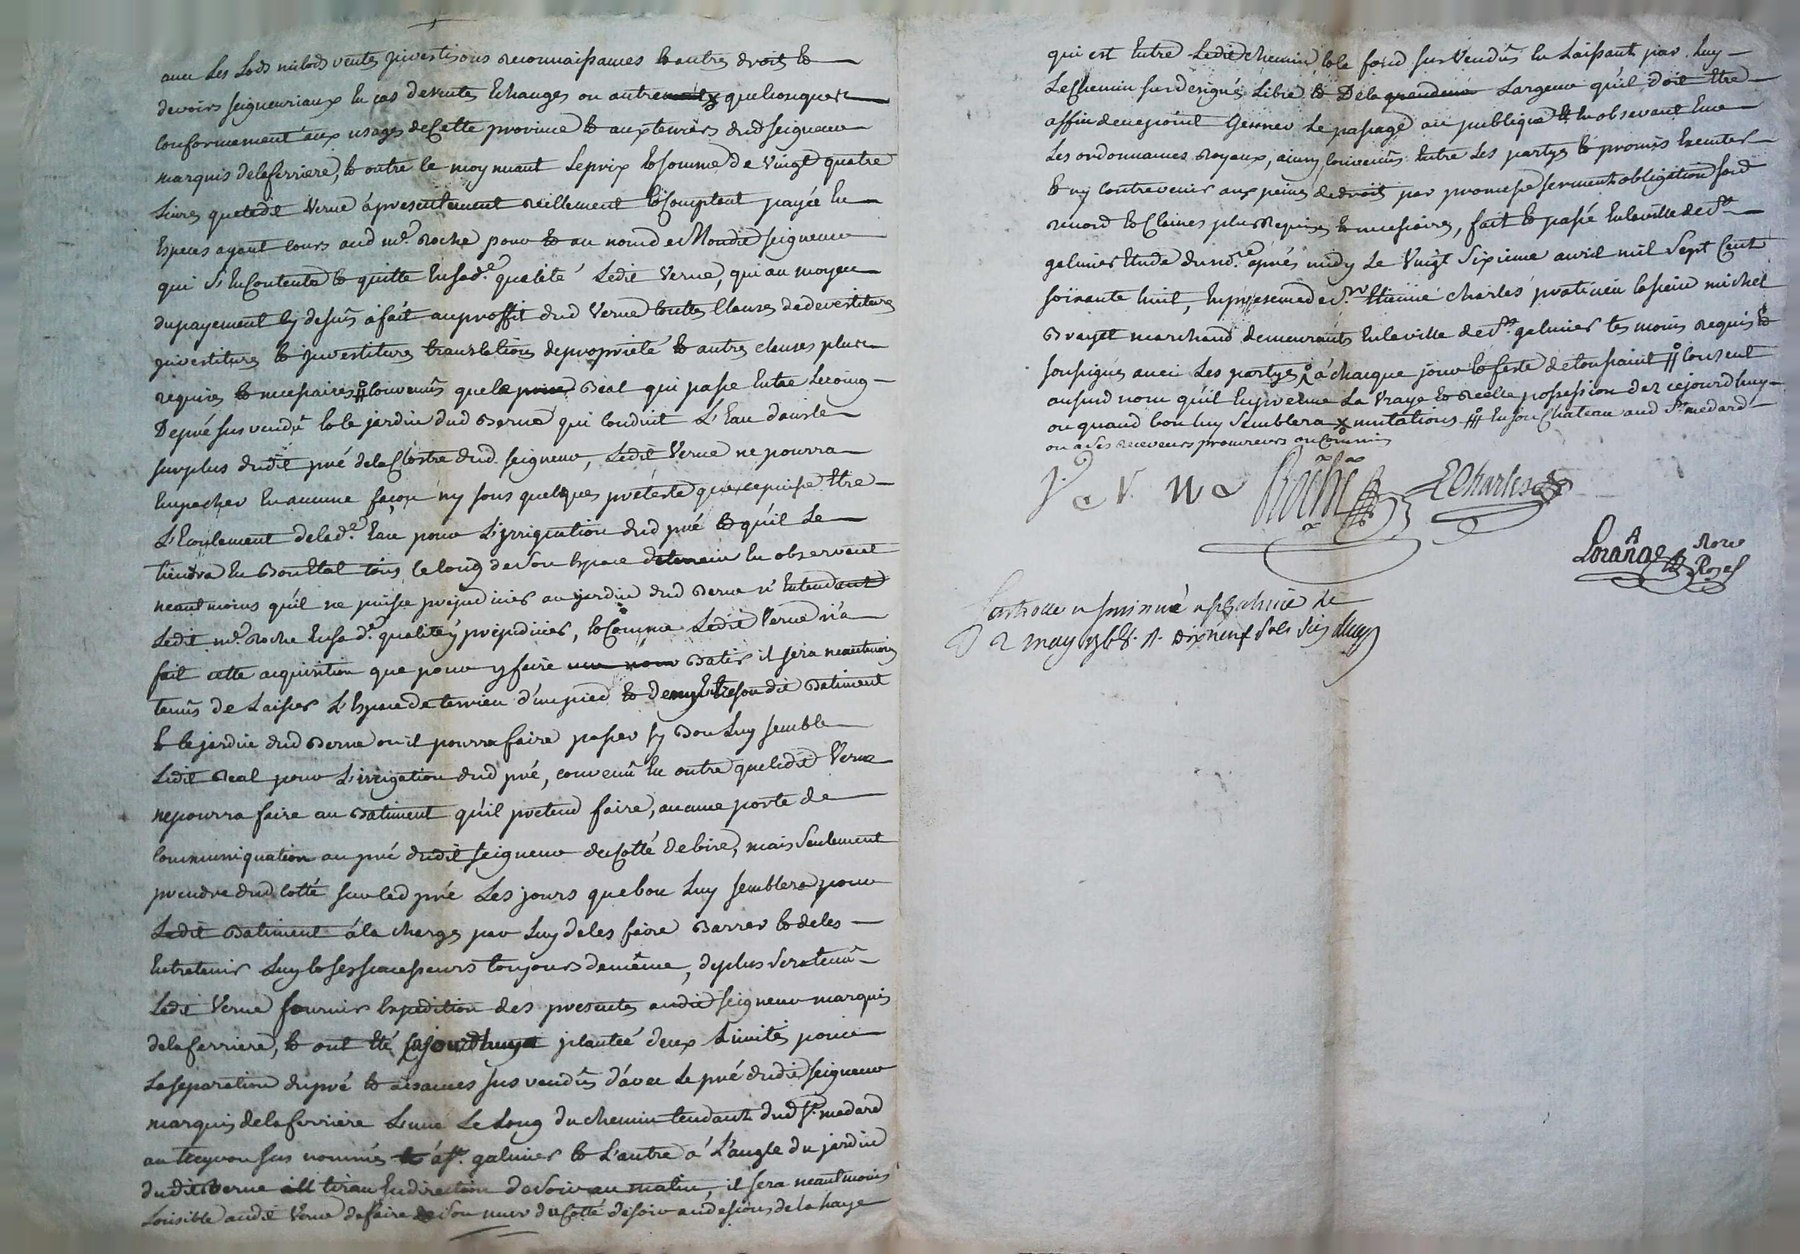 avec les Lods milods ventes investisons reconnaissances et autres droits et
devoirs seigneuriaux en cas de ventes Echanges ou autre quelconques
conformement aux usages de Cette province et aux terriers dud seigneur
marquis delaferriere, et outre le moyenant Le prix et somme de vingt quatre
Livres que ledit Verne a presentement réellement et Comptant payée En
Especes ayant cours aud me. Roche pour et au nom de Mondit seigneur
qui s'En Contente et quitte En sad.e qualité Ledit Verne, qui au moyen
du payement cy dessus a fait au proffit dud Verne touttes Clauses de devestiture
investitures translations de proprieté et autres clauses plus
requises et necessaires # Convenûs que le Béal qui passe Entre Le
De pré sus vendu et le jardin dud Berne qui Conduit L'Eau dans le
surplus dudit pré de la Clostre dud. seigneur, Ledit Verne ne pourra
Empecher En aucune façon ny sous quelques préteste que ce puisse Etre
L'Ecoulement delad.e Eau pour L'irrigation dud pré et qu'il Le
tiendra En Bon Etat tous le long de son Espace En observant
neantmoins qu'il ne puisse prejudicier au jardin dud Berne n'Entendant
Ledit me. Roche En sad.e qualité y prejudicier, et Comme Ledit Verne n'a
fait cette acquisition que pour y faire Batir il sera neantmoins
tenûs de Laisser L'Espace de terrein d'un pied et demy Entre son dit Batiment
et le jardin dud Berne ou il pourra faire passer sy Bon Luy semble
Ledit Béal pour L'irrigation dud pré, convenû En outre que ledit Verne
ne pourra faire au Batiment qu'il pretend faire, aucune porte de
Communiquation au pré dudit seigneur du Cotté de bize, mais seulement
prendre dud Cotté sur led pré Les jours que bon Luy semblera pour
Ledit Batiment à la charge par Luy de les faire Barrer et de les
Entretenir Luy et ses successeurs toujours de même, de plus sera tenû
Ledit Verne fournir Expedition des presentes audit seigneur marquis
delaferriere, et ont Eté cejourdhuy plantée deux Limites pour
La separation du pré et aisances sus vendûs d'avec Le pré dudit seigneur
marquis delaferriere L'une Le Long du chemin tendant dud St. medard
au sus nommés à St. galmier et L'autre à L'angle du jardin
dudit Berne tirant En direction de soir au matin, il sera neantmoins
Loisible audit Verne de faire son mur du Cotté de soir au de la haye
qui est Entre Ledit chemin et le fond sus Vendûs En Laissant par Luy
Le Chemin sus designé Libre et De la Largeur qu'il doit Etre
affin de ne point Genner Le passage au publique Et En observant
Les ordonnances Royaux, ainsy Convenûs Entre Les partyes et promis Executer
et n'y contrevenir aux peines de droit par promesse serment obligation
renond et Clauses plus Requises et necessaires, fait et passé En la ville de St.
galmier Etude du nore. après midy Le Vingt Sixieme avril mil Sept Cent
soixante huit, En presence de sr. Etienne charles praticien et sieur michel
Brayet marchand demeurants En la ville de St. galmier temoins requis et
soussignés avec Les partyes à chaque jour et feste de toussaint # Consent
aud nom qu'il En prenne La Vraye et Réelle possession dez cejourdhuy
ou quand bon luy semblera mutations # En son Chateau aud St. medard
ou a ses receveurs procureurs ou Commis
J. Verne Roche E Charles
Lorange Nore Royal
Controllé et insinué a St Galmier le
2 may 1768. R. dix neuf sols six